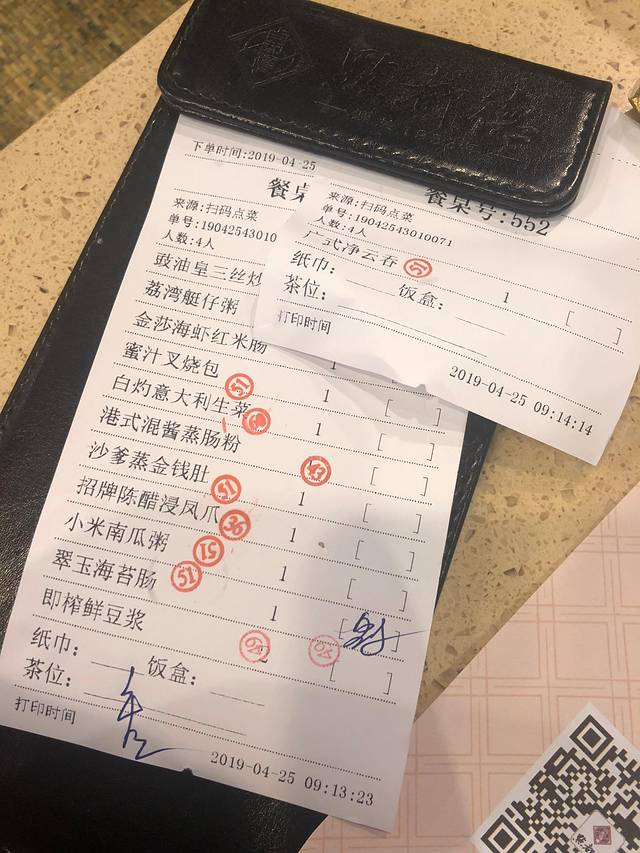 點都德
下单时间:2019-04-25
餐桌
来源:扫码点菜
单号:19042543010
人数:4人
豉油皇三丝炒
荔湾艇仔粥
金莎海虾红米肠
蜜汁叉烧包 51 1 [ ]
白灼意大利生菜 1 [ ]
港式混酱蒸肠粉 [ ]
沙爹蒸金钱肚 51 1 [ ]
招牌陈醋浸凤爪 36 1 [ ]
小米南瓜粥 15 [ ]
翠玉海苔肠 51 1 [ ]
即榨鲜豆浆 2 [ ]
纸巾: 饭盒:
茶位:
打印时间
2019-04-25 09:13:23
餐桌号:552
来源:扫码点菜
单号:19042543010071
人数:4人
广式净云吞 51 1 [ ]
纸巾: 饭盒:
茶位:
打印时间
2019-04-25 09:14:14